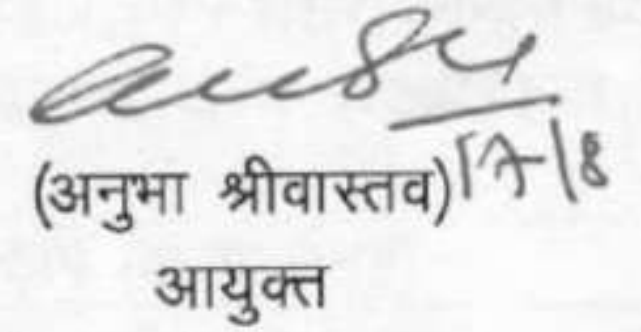 (अनुभा श्रीवास्तव) 17/8
आयुक्त